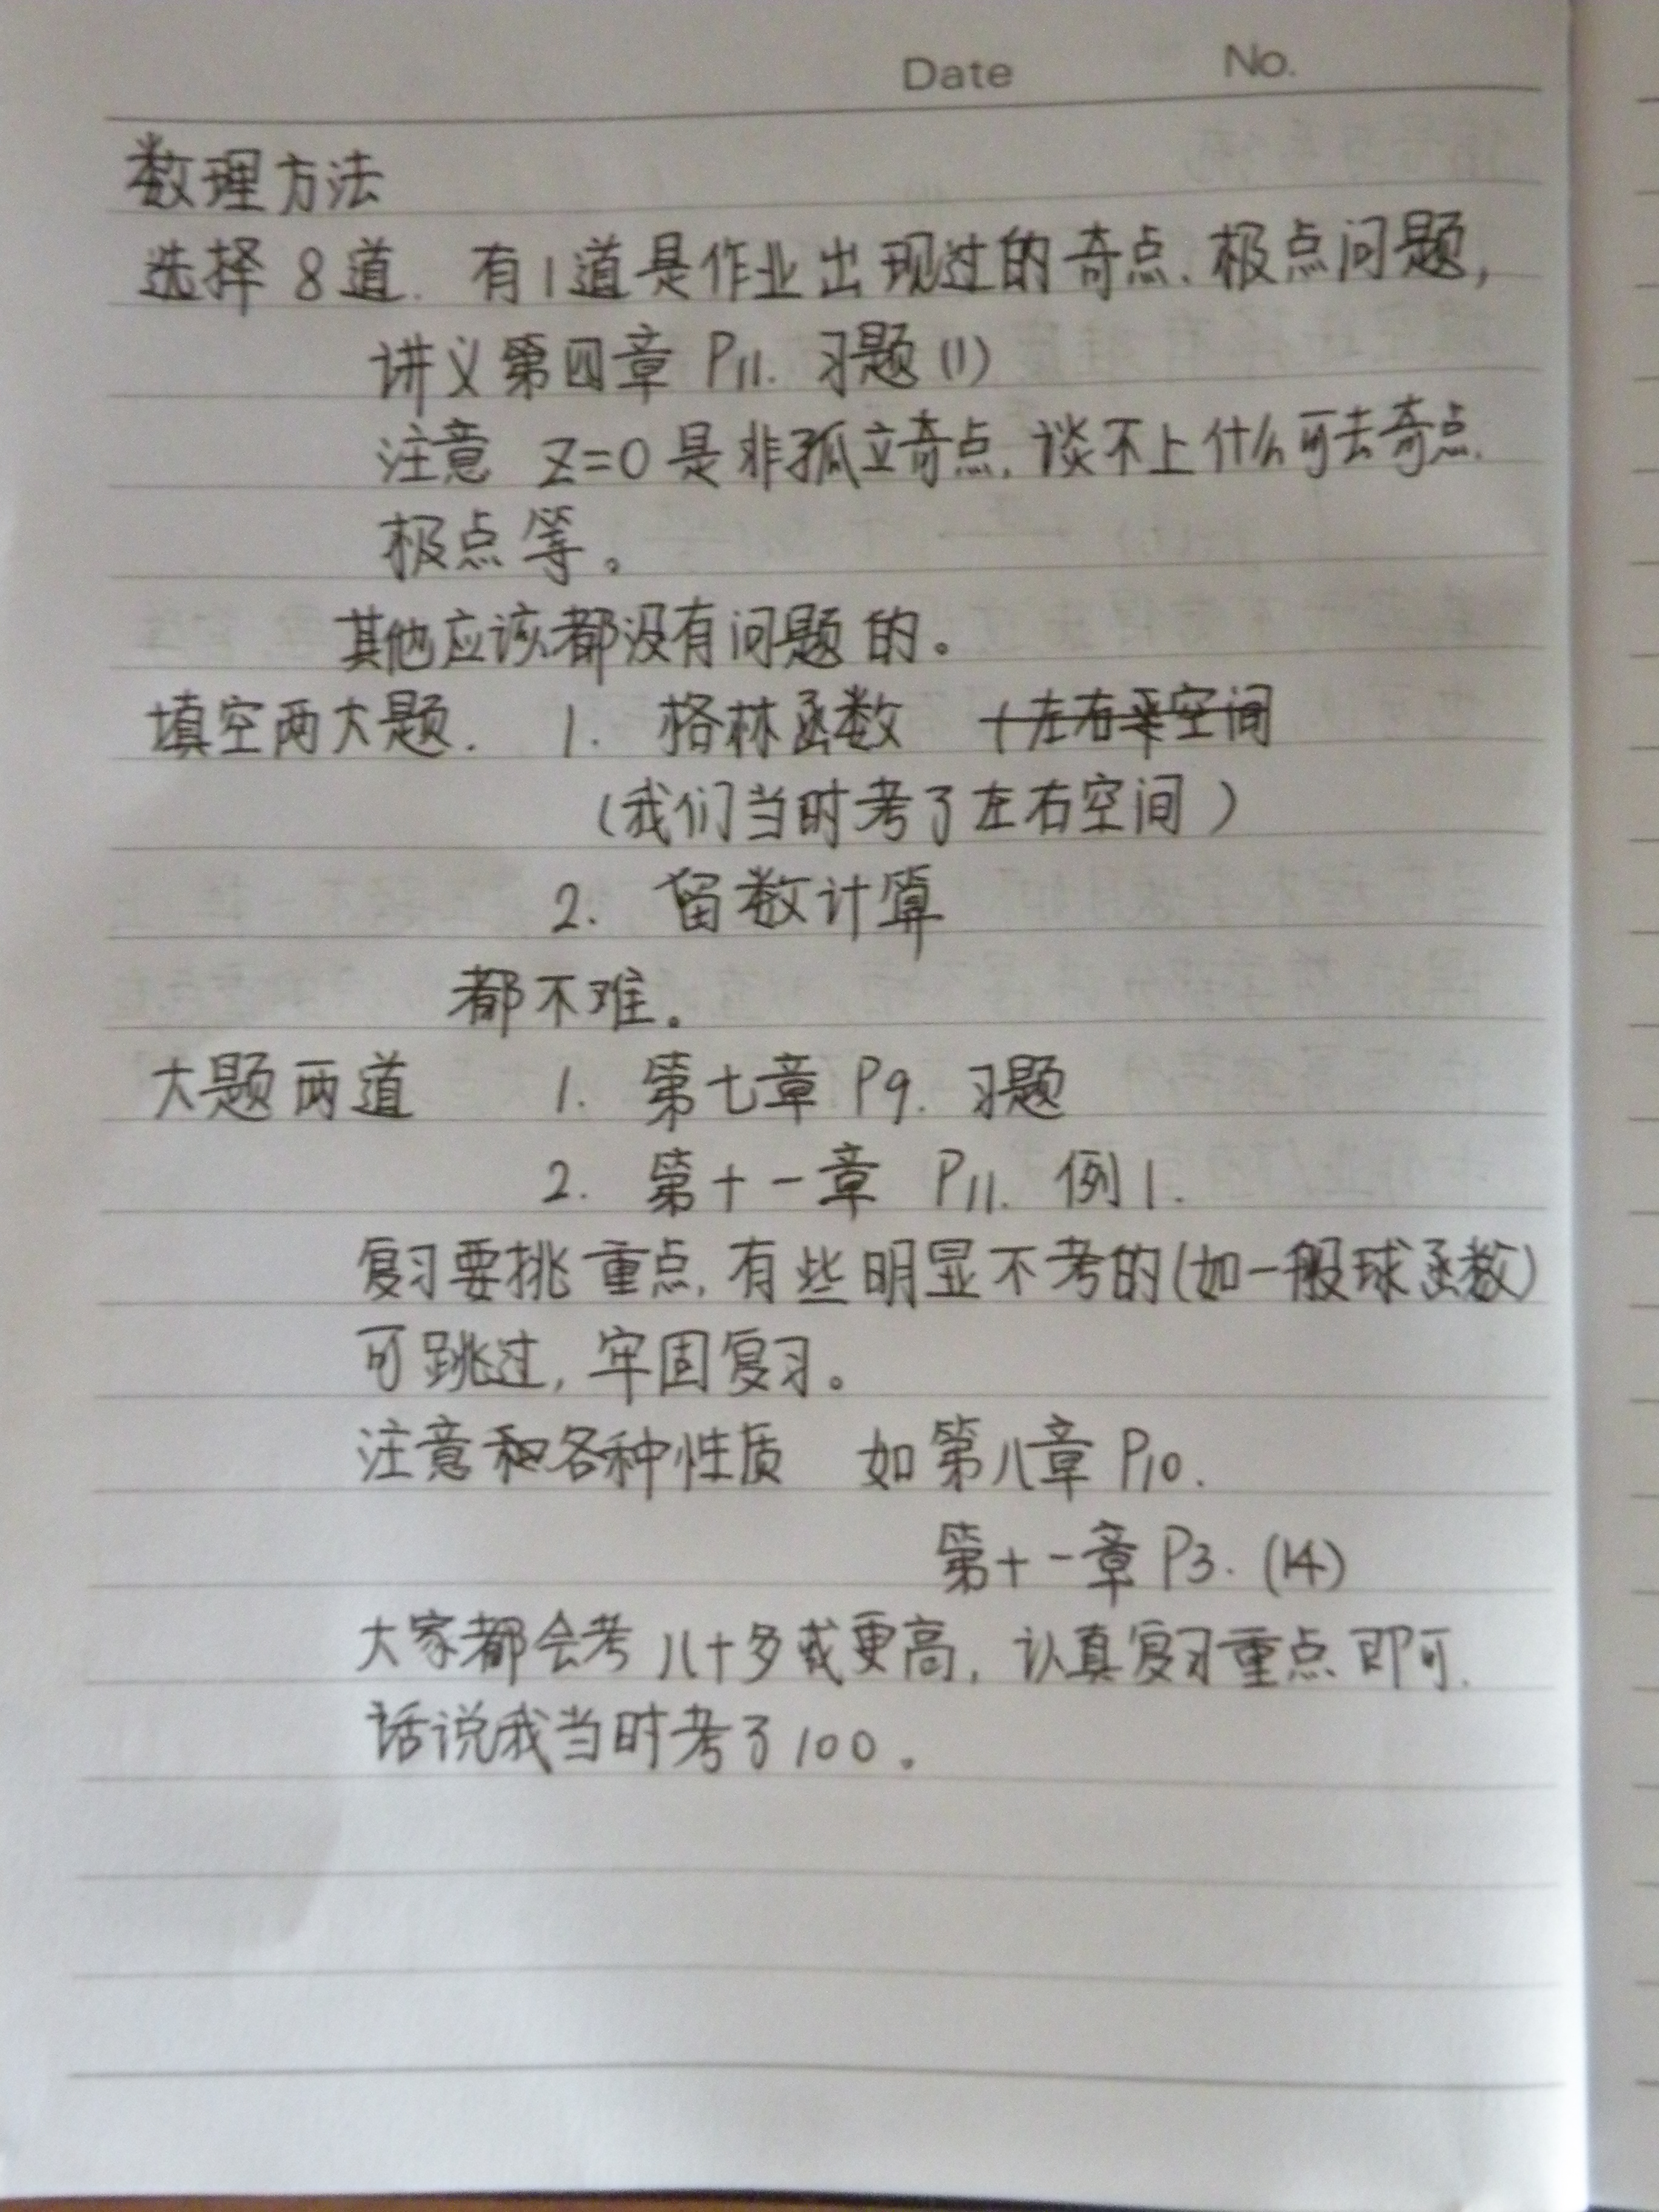 Date No.
数理方法
选择 8道. 有1道是作业出现过的奇点、极点问题,
讲义第四章 P11. 习题(1)
注意 z=0 是非孤立奇点, 谈不上什么可去奇点.
极点等。
其他应该都没有问题的。
填空两大题. 1. 格林函数 (左右空间
(我们当时考了左右空间)
2. 留数计算
都不难。
大题两道 1. 第七章 P9. 习题
2. 第十一章 P11. 例1.
复习要挑重点, 有些明显不考的(如一般球函数)
可跳过, 牢固复习。
注意和各种性质 如第八章 P10.
第十一章 P3. (14)
大家都会考八十多或更高, 认真复习重点即可.
话说我当时考了100。